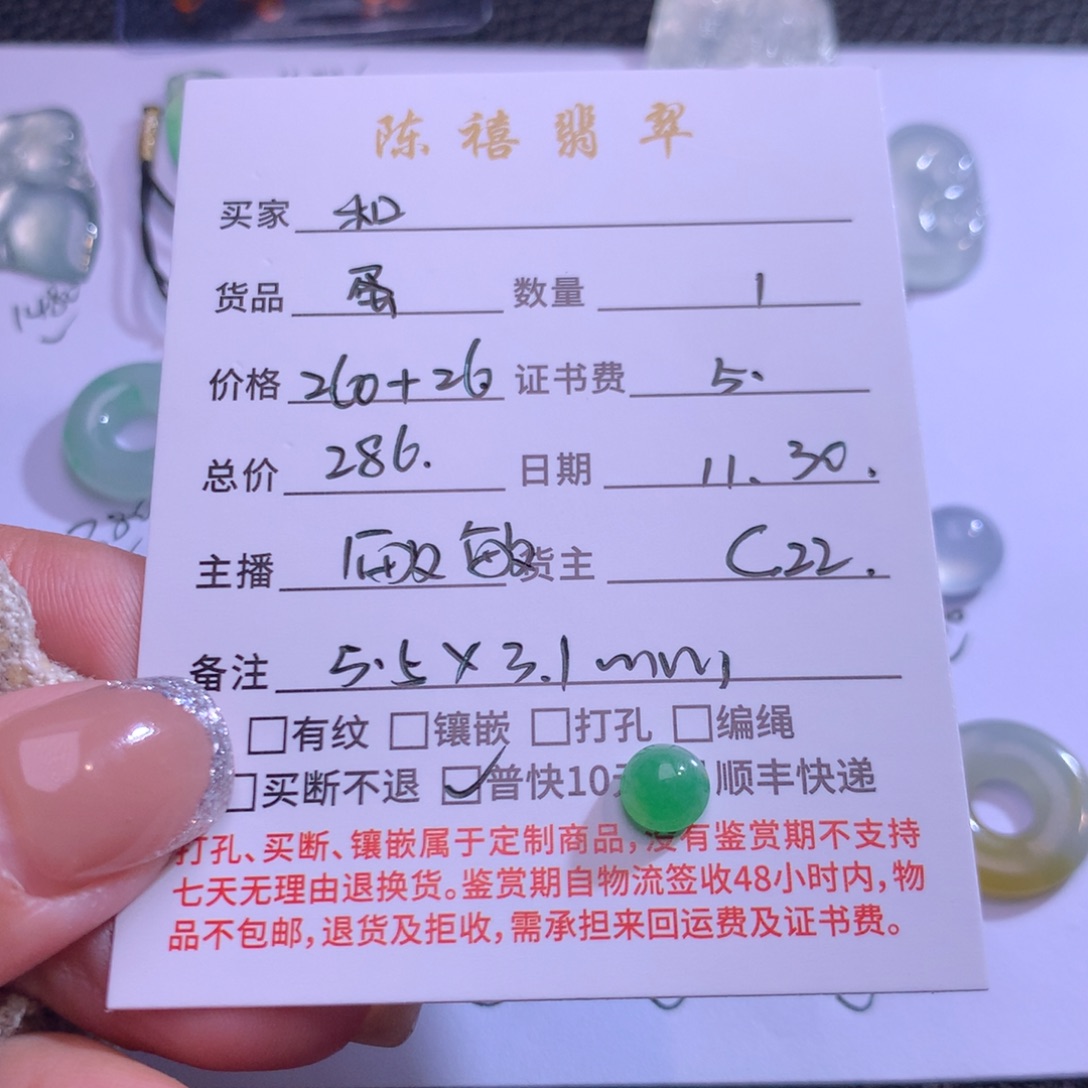 陈禧翡翠
买家 和
货品 蛋 数量 1
价格 260+26. 证书费 5.
总价 286. 日期 11.30.
主播 货主 C22.
备注 5.5×3.1mm,
□有纹 □镶嵌 □打孔 □编绳
□买断不退 ☑普快10 顺丰快递
打孔、买断、镶嵌属于定制商品,没有鉴赏期不支持
七天无理由退换货。鉴赏期自物流签收48小时内,物
品不包邮,退货及拒收,需承担来回运费及证书费。
1480